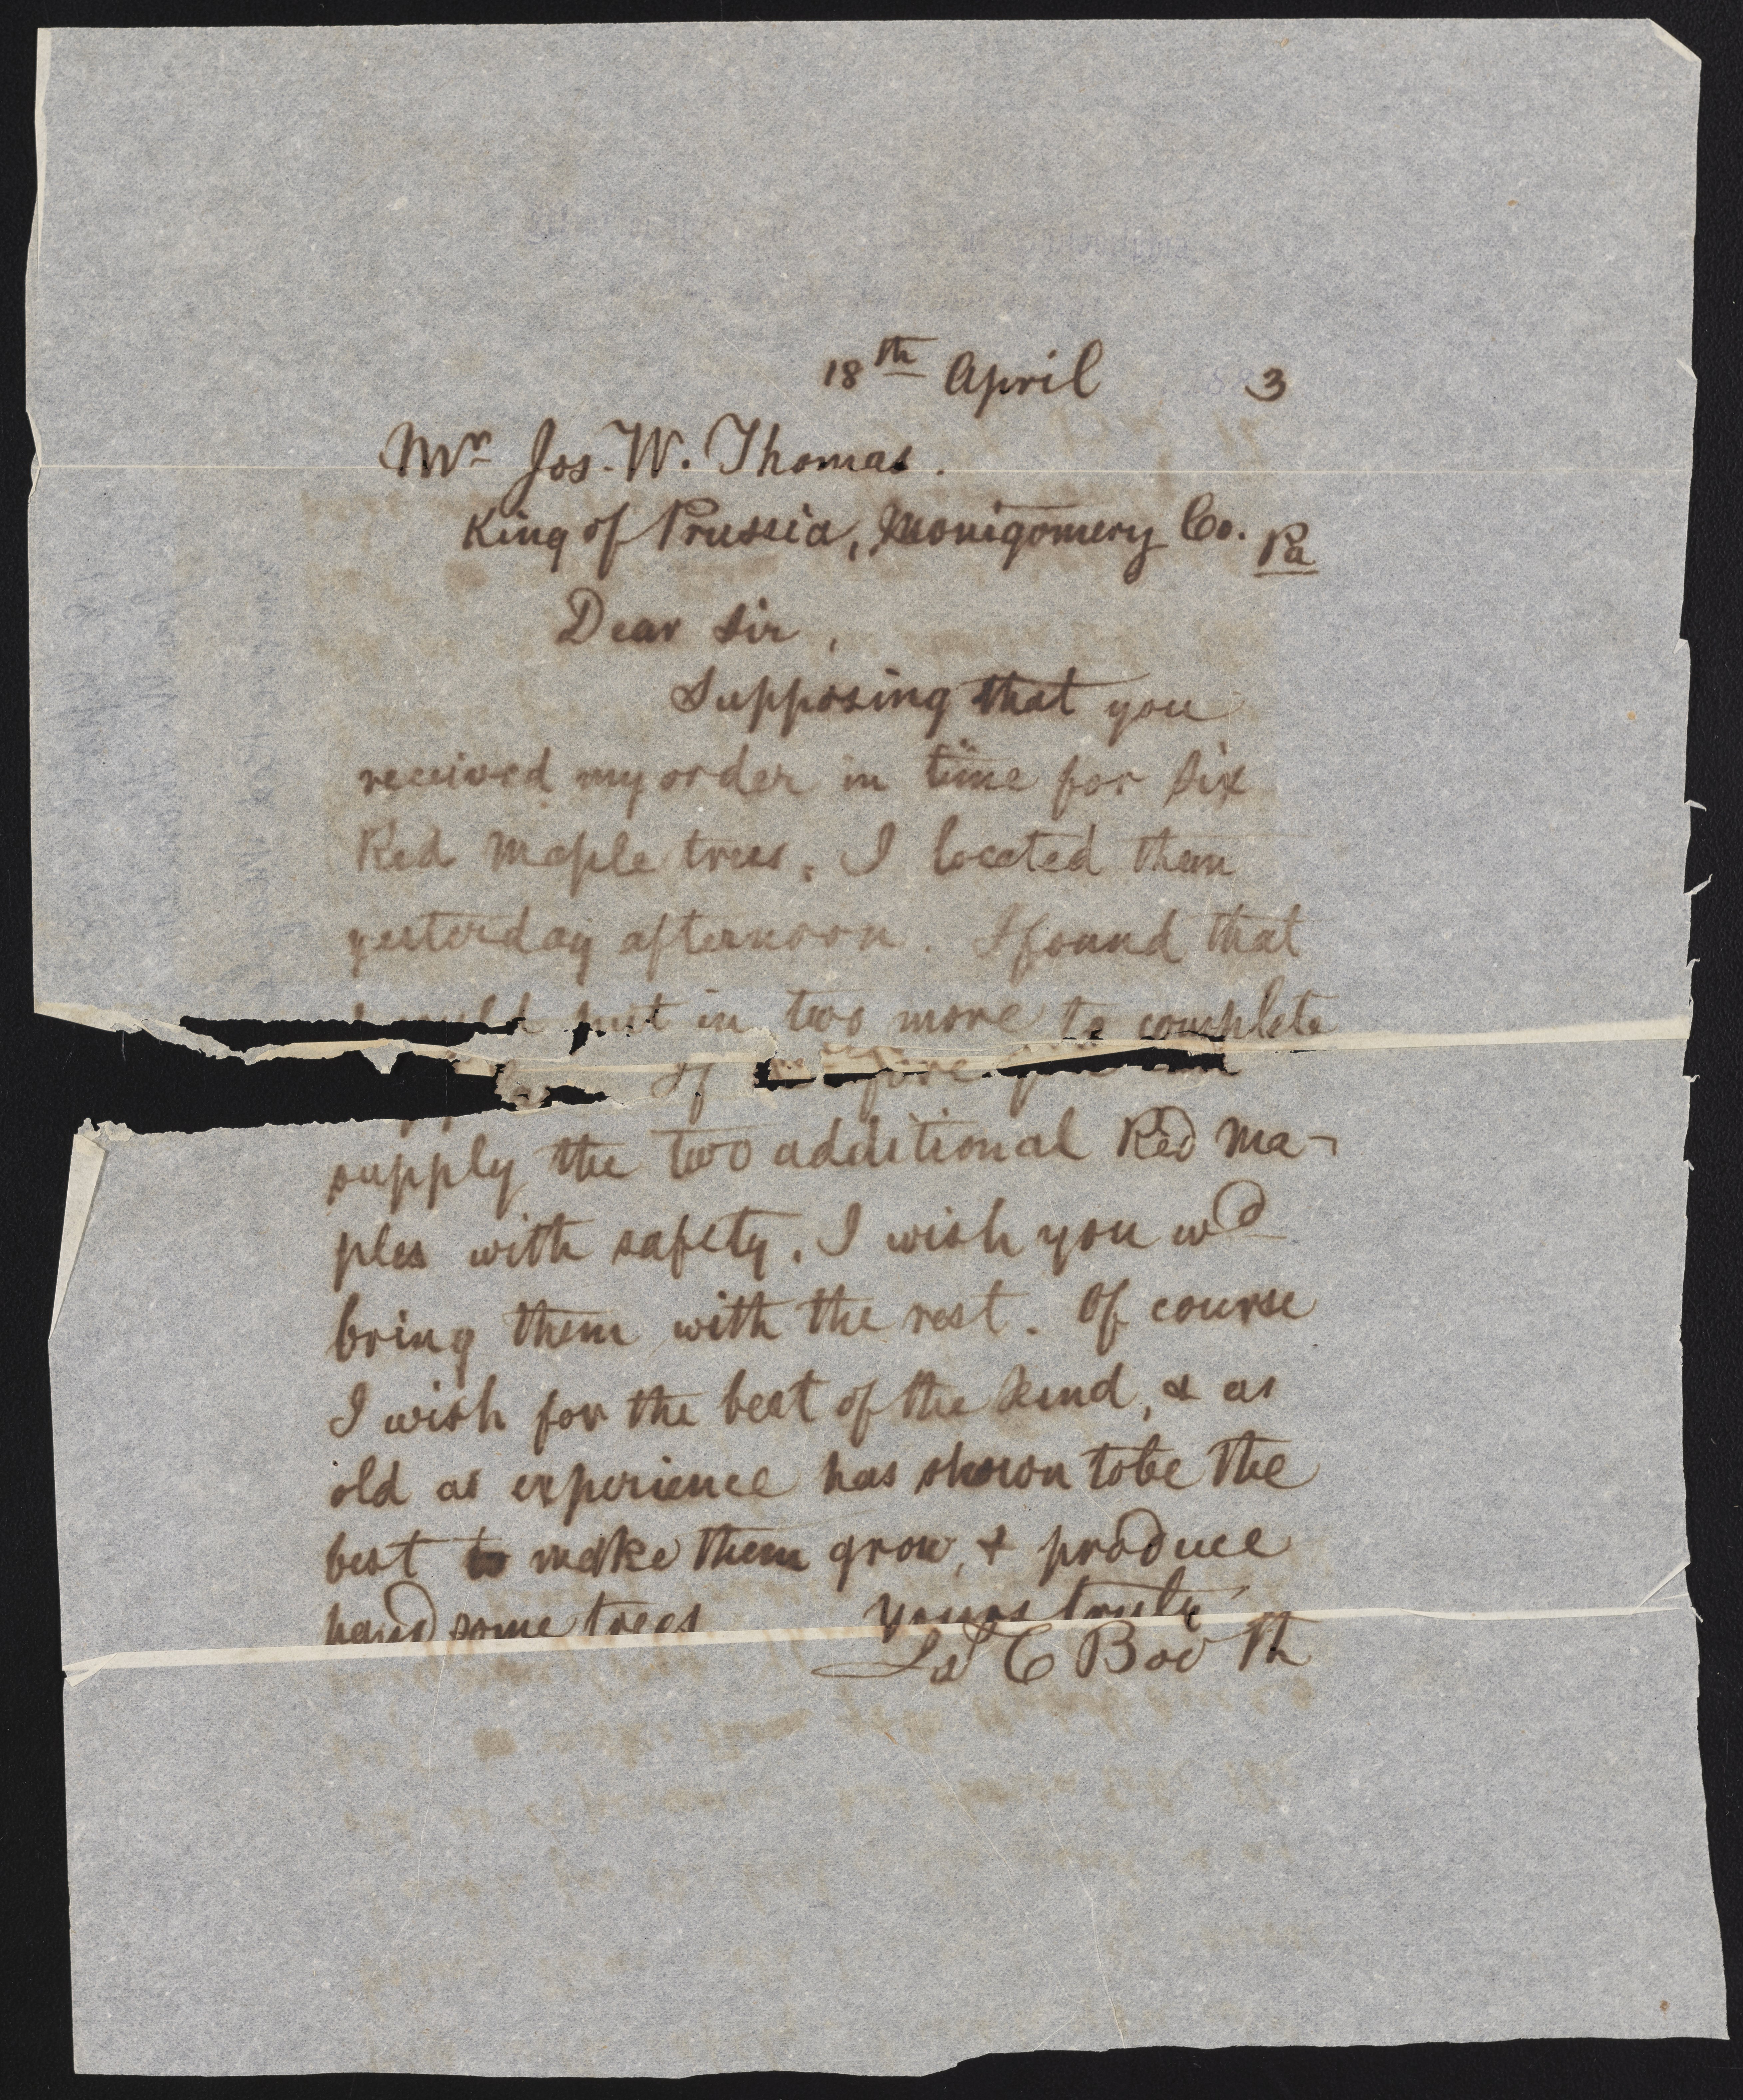 18th April 1883
Mr Jos. W. Thomas.
King of Prussia, Montgomery Co. Pa
Dear Sir,
Supposing that you
received my order in time for six
Red Maple trees, I located them
yesterday afternoon. I found that
I could put in two more to complete
If therefore you can
supply the two additional Red Ma-
ples with safety, I wish you wd
bring them with the rest. Of course
I wish for the best of the kind, & as
old as experience has shown to be the
best to make them grow, & produce
handsome trees Yours truly
Jas C Booth